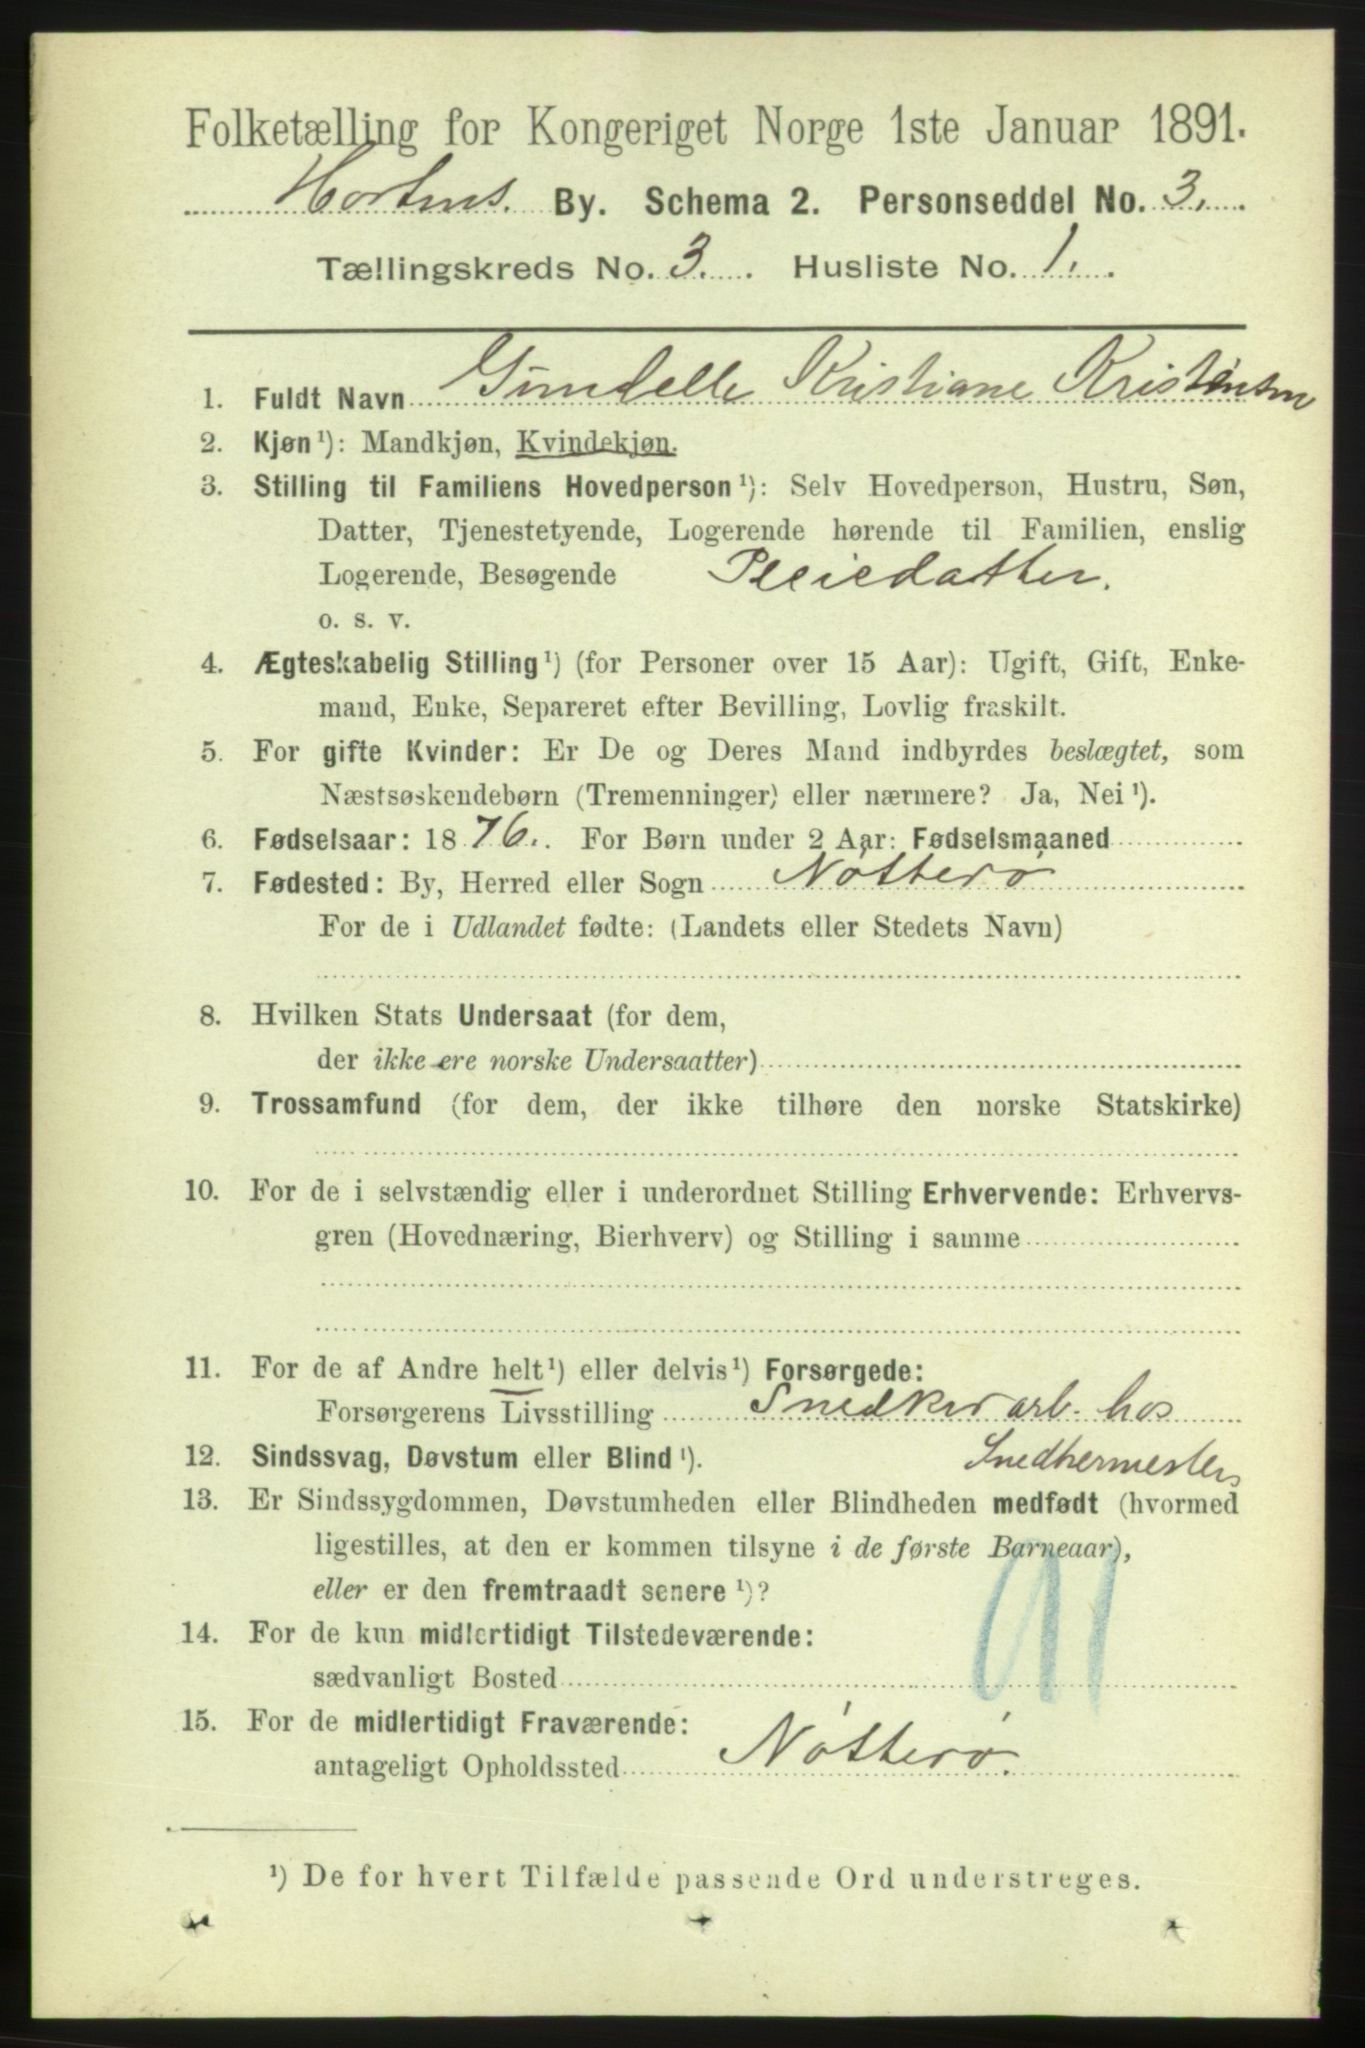 Folketælling for Kongeriget Norge 1ste Januar 1891.
Hortens. By. Schema 2. Personseddel No. 3.
Tællingskreds No. 3. Husliste No. 1.
1. Fuldt Navn Gundelle Kristiane Kristensen
2. Kjøn ¹): Mandkjøn, Kvindekjøn.
3. Stilling til Familiens Hovedperson ¹): Selv Hovedperson, Hustru, Søn,
Datter, Tjenestetyende, Logerende hørende til Familien, enslig
Logerende, Besøgende Pleiedatter.
o. s. v.
4. Ægteskabelig Stilling ¹) (for Personer over 15 Aar): Ugift, Gift, Enke-
mand, Enke, Separeret efter Bevilling, Lovlig fraskilt.
5. For gifte Kvinder: Er De og Deres Mand indbyrdes beslægtet, som
Næstsøskendebørn (Tremenninger) eller nærmere? Ja, Nei ¹).
6. Fødselsaar: 1876. For Børn under 2 Aar: Fødselsmaaned
7. Fødested: By, Herred eller Sogn Nøtterø
For de i Udlandet fødte: (Landets eller Stedets Navn)
8. Hvilken Stats Undersaat (for dem,
der ikke ere norske Undersaatter)
9. Trossamfund (for dem, der ikke tilhøre den norske Statskirke)
10. For de i selvstændig eller i underordnet Stilling Erhvervende: Erhvervs-
gren (Hovednæring, Bierhverv) og Stilling i samme
11. For de af Andre helt ¹) eller delvis ¹) Forsørgede:
Forsørgerens Livsstilling Snedkerarb. hos
12. Sindssvag, Døvstum eller Blind ¹). Snedkermesters
13. Er Sindssygdommen, Døvstumheden eller Blindheden medfødt (hvormed
ligestilles, at den er kommen tilsyne i de første Barneaar),
eller er den fremtraadt senere ¹)?
14. For de kun midlertidigt Tilstedeværende:
sædvanligt Bosted
15. For de midlertidigt Fraværende:
antageligt Opholdssted Nøtterø.
¹) De for hvert Tilfælde passende Ord understreges.